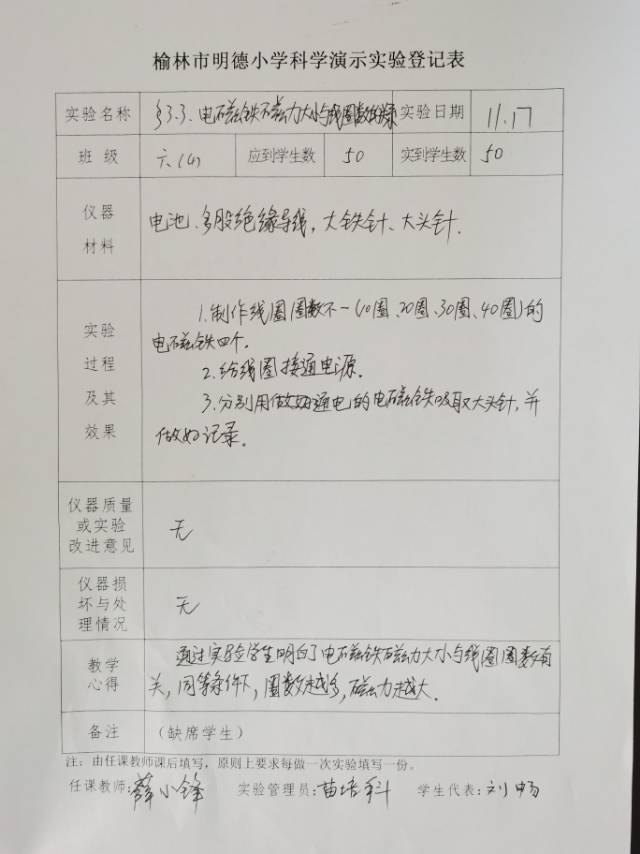 榆林市明德小学科学演示实验登记表
实验名称 §3.3、电磁铁磁力大小与线圈数的 实验日期 11.17
班 级 六、(4) 应到学生数 50 实到学生数 50
仪器
材料
电池、多股绝缘导线，大铁针、大头针.
实验
过程
及其
效果
1.制作线圈圈数不一(10圈、20圈、30圈、40圈)的
电磁铁四个.
2.给线圈接通电源.
3.分别用做好通电的电磁铁吸取大头针，并
做好记录.
仪器质量
或实验
改进意见
无
仪器损
坏与处
理情况
无
教学
心得
通过实验学生明白了电磁铁磁力大小与线圈圈数有
关，同等条件下，圈数越多，磁力越大.
备注 （缺席学生）
注：由任课教师课后填写，原则上要求每做一次实验填写一份。
任课教师:薛小锋 实验管理员:苗培科 学生代表:刘畅